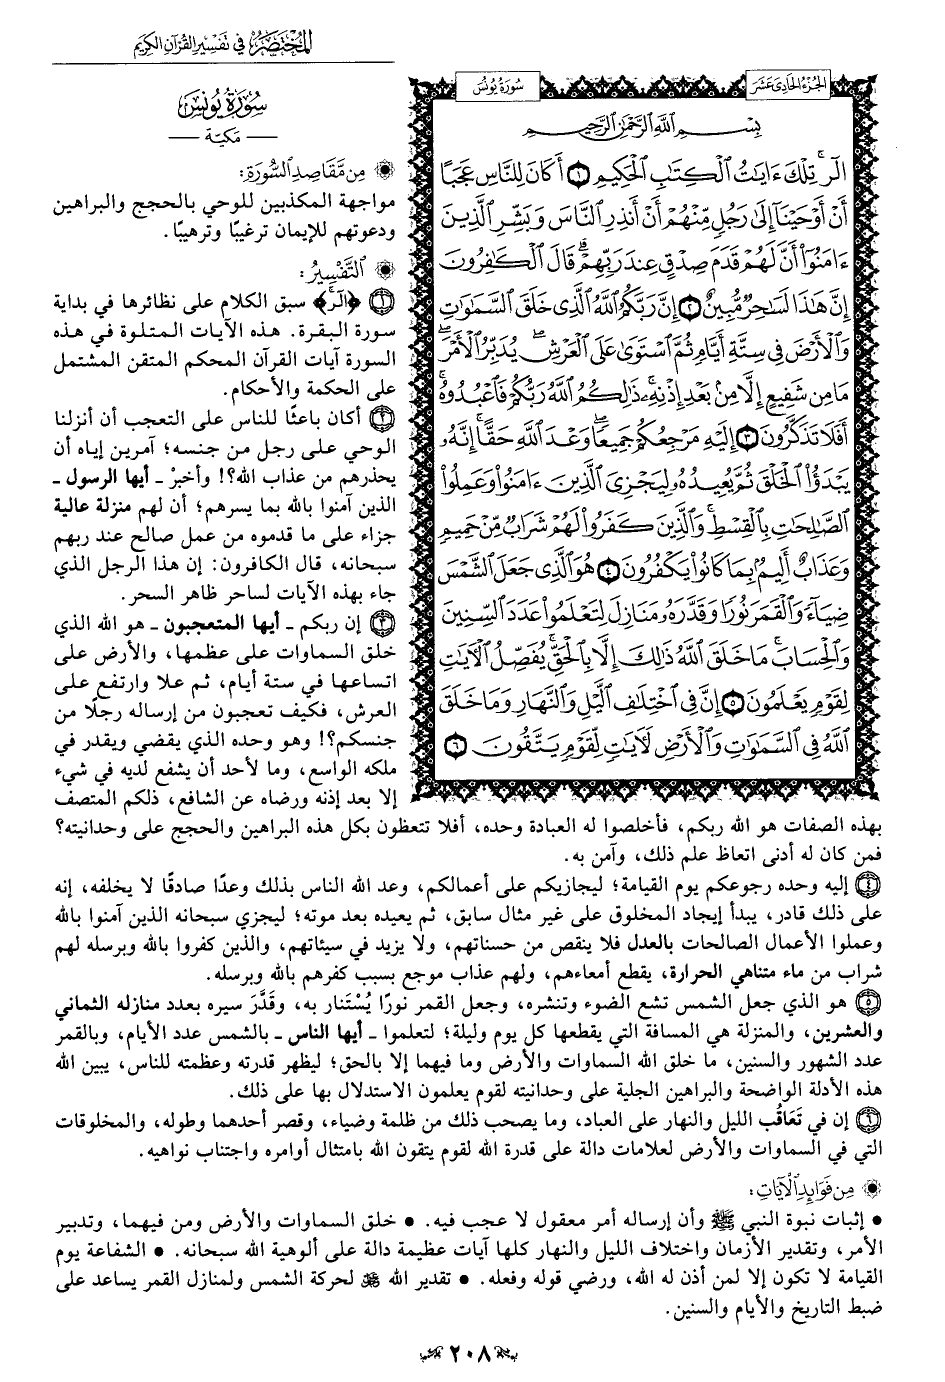 المختصر في تفسير القرآن الكريم
الجزء الحادي عشر
سورة يونس
بِسْمِ اللَّهِ الرَّحْمَٰنِ الرَّحِيمِ
الٓرۚ تِلۡكَ ءَايَٰتُ ٱلۡكِتَٰبِ ٱلۡحَكِيمِ ١ أَكَانَ لِلنَّاسِ عَجَبًا
أَنۡ أَوۡحَيۡنَآ إِلَىٰ رَجُلٖ مِّنۡهُمۡ أَنۡ أَنذِرِ ٱلنَّاسَ وَبَشِّرِ ٱلَّذِينَ
ءَامَنُوٓاْ أَنَّ لَهُمۡ قَدَمَ صِدۡقٍ عِندَ رَبِّهِمۡۗ قَالَ ٱلۡكَٰفِرُونَ
إِنَّ هَٰذَا لَسَٰحِرٞ مُّبِينٌ ٢ إِنَّ رَبَّكُمُ ٱللَّهُ ٱلَّذِي خَلَقَ ٱلسَّمَٰوَٰتِ
وَٱلۡأَرۡضَ فِي سِتَّةِ أَيَّامٖ ثُمَّ ٱسۡتَوَىٰ عَلَى ٱلۡعَرۡشِۖ يُدَبِّرُ ٱلۡأَمۡرَۖ
مَا مِن شَفِيعٍ إِلَّا مِنۢ بَعۡدِ إِذۡنِهِۦۚ ذَٰلِكُمُ ٱللَّهُ رَبُّكُمۡ فَٱعۡبُدُوهُۚ
أَفَلَا تَذَكَّرُونَ ٣ إِلَيۡهِ مَرۡجِعُكُمۡ جَمِيعٗاۖ وَعۡدَ ٱللَّهِ حَقًّاۚ إِنَّهُۥ
يَبۡدَؤُاْ ٱلۡخَلۡقَ ثُمَّ يُعِيدُهُۥ لِيَجۡزِيَ ٱلَّذِينَ ءَامَنُواْ وَعَمِلُواْ
ٱلصَّٰلِحَٰتِ بِٱلۡقِسۡطِۚ وَٱلَّذِينَ كَفَرُواْ لَهُمۡ شَرَابٞ مِّنۡ حَمِيمٖ
وَعَذَابٌ أَلِيمُۢ بِمَا كَانُواْ يَكۡفُرُونَ ٤ هُوَ ٱلَّذِي جَعَلَ ٱلشَّمۡسَ
ضِيَآءٗ وَٱلۡقَمَرَ نُورٗا وَقَدَّرَهُۥ مَنَازِلَ لِتَعۡلَمُواْ عَدَدَ ٱلسِّنِينَ
وَٱلۡحِسَابَۚ مَا خَلَقَ ٱللَّهُ ذَٰلِكَ إِلَّا بِٱلۡحَقِّۚ يُفَصِّلُ ٱلۡأٓيَٰتِ
لِقَوۡمٖ يَعۡلَمُونَ ٥ إِنَّ فِي ٱخۡتِلَٰفِ ٱلَّيۡلِ وَٱلنَّهَارِ وَمَا خَلَقَ
ٱللَّهُ فِي ٱلسَّمَٰوَٰتِ وَٱلۡأَرۡضِ لَأٓيَٰتٖ لِّقَوۡمٖ يَتَّقُونَ ٦
سورة يونس
— مكية —
من مقاصد السورة:
مواجهة المكذبين للوحي بالحجج والبراهين
ودعوتهم للإيمان ترغيبًا وترهيبًا.
التفسير:
١ ﴿الٓر﴾ سبق الكلام على نظائرها في بداية
سورة البقرة. هذه الآيات المتلوة في هذه
السورة آيات القرآن المحكم المتقن المشتمل
على الحكمة والأحكام.
٢ أكان باعثًا للناس على التعجب أن أنزلنا
الوحي على رجل من جنسه؛ آمرين إياه أن
يحذرهم من عذاب الله؟! وأخبرْ ـ أيها الرسول ـ
الذين آمنوا بالله بما يسرهم؛ أن لهم منزلة عالية
جزاء على ما قدموه من عمل صالح عند ربهم
سبحانه، قال الكافرون: إن هذا الرجل الذي
جاء بهذه الآيات لساحر ظاهر السحر.
٣ إن ربكم ـ أيها المتعجبون ـ هو الله الذي
خلق السماوات على عظمها، والأرض على
اتساعها في ستة أيام، ثم علا وارتفع على
العرش، فكيف تعجبون من إرساله رجلًا من
جنسكم؟! وهو وحده الذي يقضي ويقدر في
ملكه الواسع، وما لأحد أن يشفع لديه في شيء
إلا بعد إذنه ورضاه عن الشافع، ذلكم المتصف
بهذه الصفات هو الله ربكم، فأخلصوا له العبادة وحده، أفلا تتعظون بكل هذه البراهين والحجج على وحدانيته؟
فمن كان له أدنى اتعاظ علم ذلك، وآمن به.
٤ إليه وحده رجوعكم يوم القيامة؛ ليجازيكم على أعمالكم، وعد الله الناس بذلك وعدًا صادقًا لا يخلفه، إنه
على ذلك قادر، يبدأ إيجاد المخلوق على غير مثال سابق، ثم يعيده بعد موته؛ ليجزي سبحانه الذين آمنوا بالله
وعملوا الأعمال الصالحات بالعدل فلا ينقص من حسناتهم، ولا يزيد في سيئاتهم، والذين كفروا بالله وبرسله لهم
شراب من ماء متناهي الحرارة، يقطع أمعاءهم، ولهم عذاب موجع بسبب كفرهم بالله وبرسله.
٥ هو الذي جعل الشمس تشع الضوء وتنشره، وجعل القمر نورًا يُسْتَنار به، وقَدَّرَ سيره بعدد منازله الثماني
والعشرين، والمنزلة هي المسافة التي يقطعها كل يوم وليلة؛ لتعلموا ـ أيها الناس ـ بالشمس عدد الأيام، وبالقمر
عدد الشهور والسنين، ما خلق الله السماوات والأرض وما فيهما إلا بالحق؛ ليظهر قدرته وعظمته للناس، يبين الله
هذه الأدلة الواضحة والبراهين الجلية على وحدانيته لقوم يعلمون الاستدلال بها على ذلك.
٦ إن في تَعَاقُب الليل والنهار على العباد، وما يصحب ذلك من ظلمة وضياء، وقصر أحدهما وطوله، والمخلوقات
التي في السماوات والأرض لعلامات دالة على قدرة الله لقوم يتقون الله بامتثال أوامره واجتناب نواهيه.
من فوائد الآيات:
• إثبات نبوة النبي ﷺ وأن إرساله أمر معقول لا عجب فيه. • خلق السماوات والأرض ومن فيهما، وتدبير
الأمر، وتقدير الأزمان واختلاف الليل والنهار كلها آيات عظيمة دالة على ألوهية الله سبحانه. • الشفاعة يوم
القيامة لا تكون إلا لمن أذن له الله، ورضي قوله وفعله. • تقدير الله ﷻ لحركة الشمس ولمنازل القمر يساعد على
ضبط التاريخ والأيام والسنين.
٢٠٨